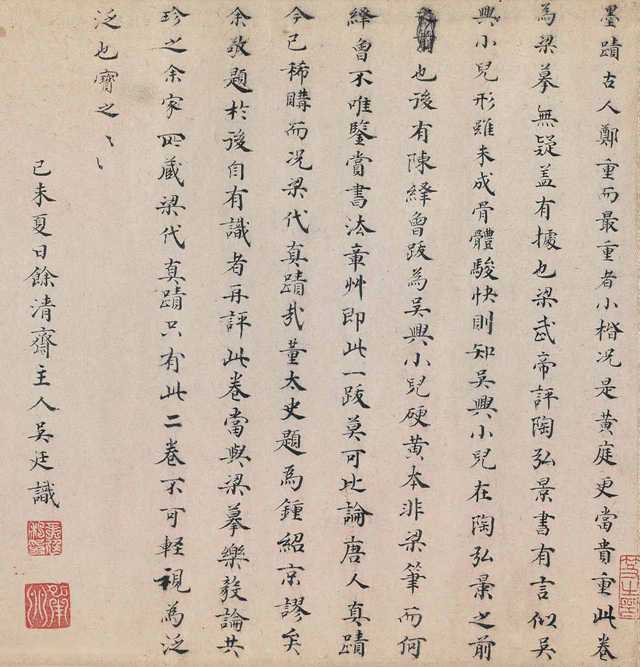 墨蹟古人鄭重而最重者小楷况是黃庭更當貴重此卷
為梁摹無疑盖有據也梁武帝評陶弘景書有言似吳
興小兒形雖未成骨體駿快則知吳興小兒在陶弘景之前
也後有陳繹曾跋為吳興小兒硬黃本非梁筆而何
繹曾不唯鑒賞書法章艸即此一跋莫可比論唐人真蹟
今已稀購而况梁代真蹟哉董太史題為鍾紹京謬矣
余敬題於後自有識者再評此卷當與梁摹樂毅論共
珍之余家所藏梁代真蹟只有此二卷不可輕視為泛
泛也寶之〻
己未夏日餘清齋主人吳廷識